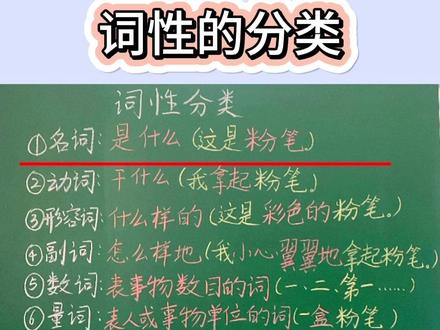 词性的分类
词性分类
①名词:是什么(这是粉笔。)
②动词:干什么(我拿起粉笔。)
③形容词:什么样的(这是彩色的粉笔。)
④副词:怎么样地(我小心翼翼地拿起粉笔。)
⑤数词:表事物数目的词(一、二、第一……)
⑥量词:表人或事物单位的词(一盒粉笔。)